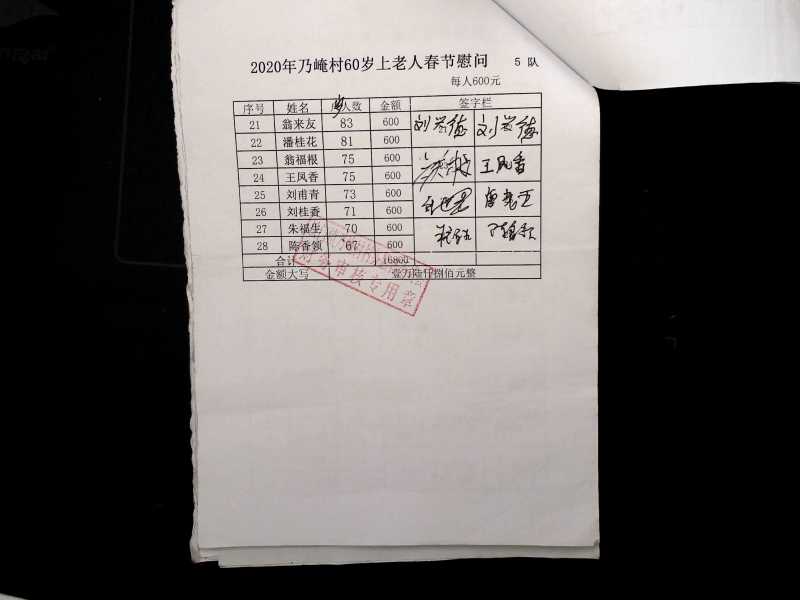 2020年乃崦村60岁上老人春节慰问 5 队
每人600元
序号 姓名 岁人数 金额 签字栏
21 翁来友 83 600 刘安德 刘安德
22 潘桂花 81 600
23 翁福根 75 600
24 王凤香 75 600 王凤香
25 刘甫青 73 600
26 刘桂香 71 600
27 朱福生 70 600
28 陈香领 67 600
合计 16800
金额大写 壹万陆仟捌佰元整
财务审核专用章